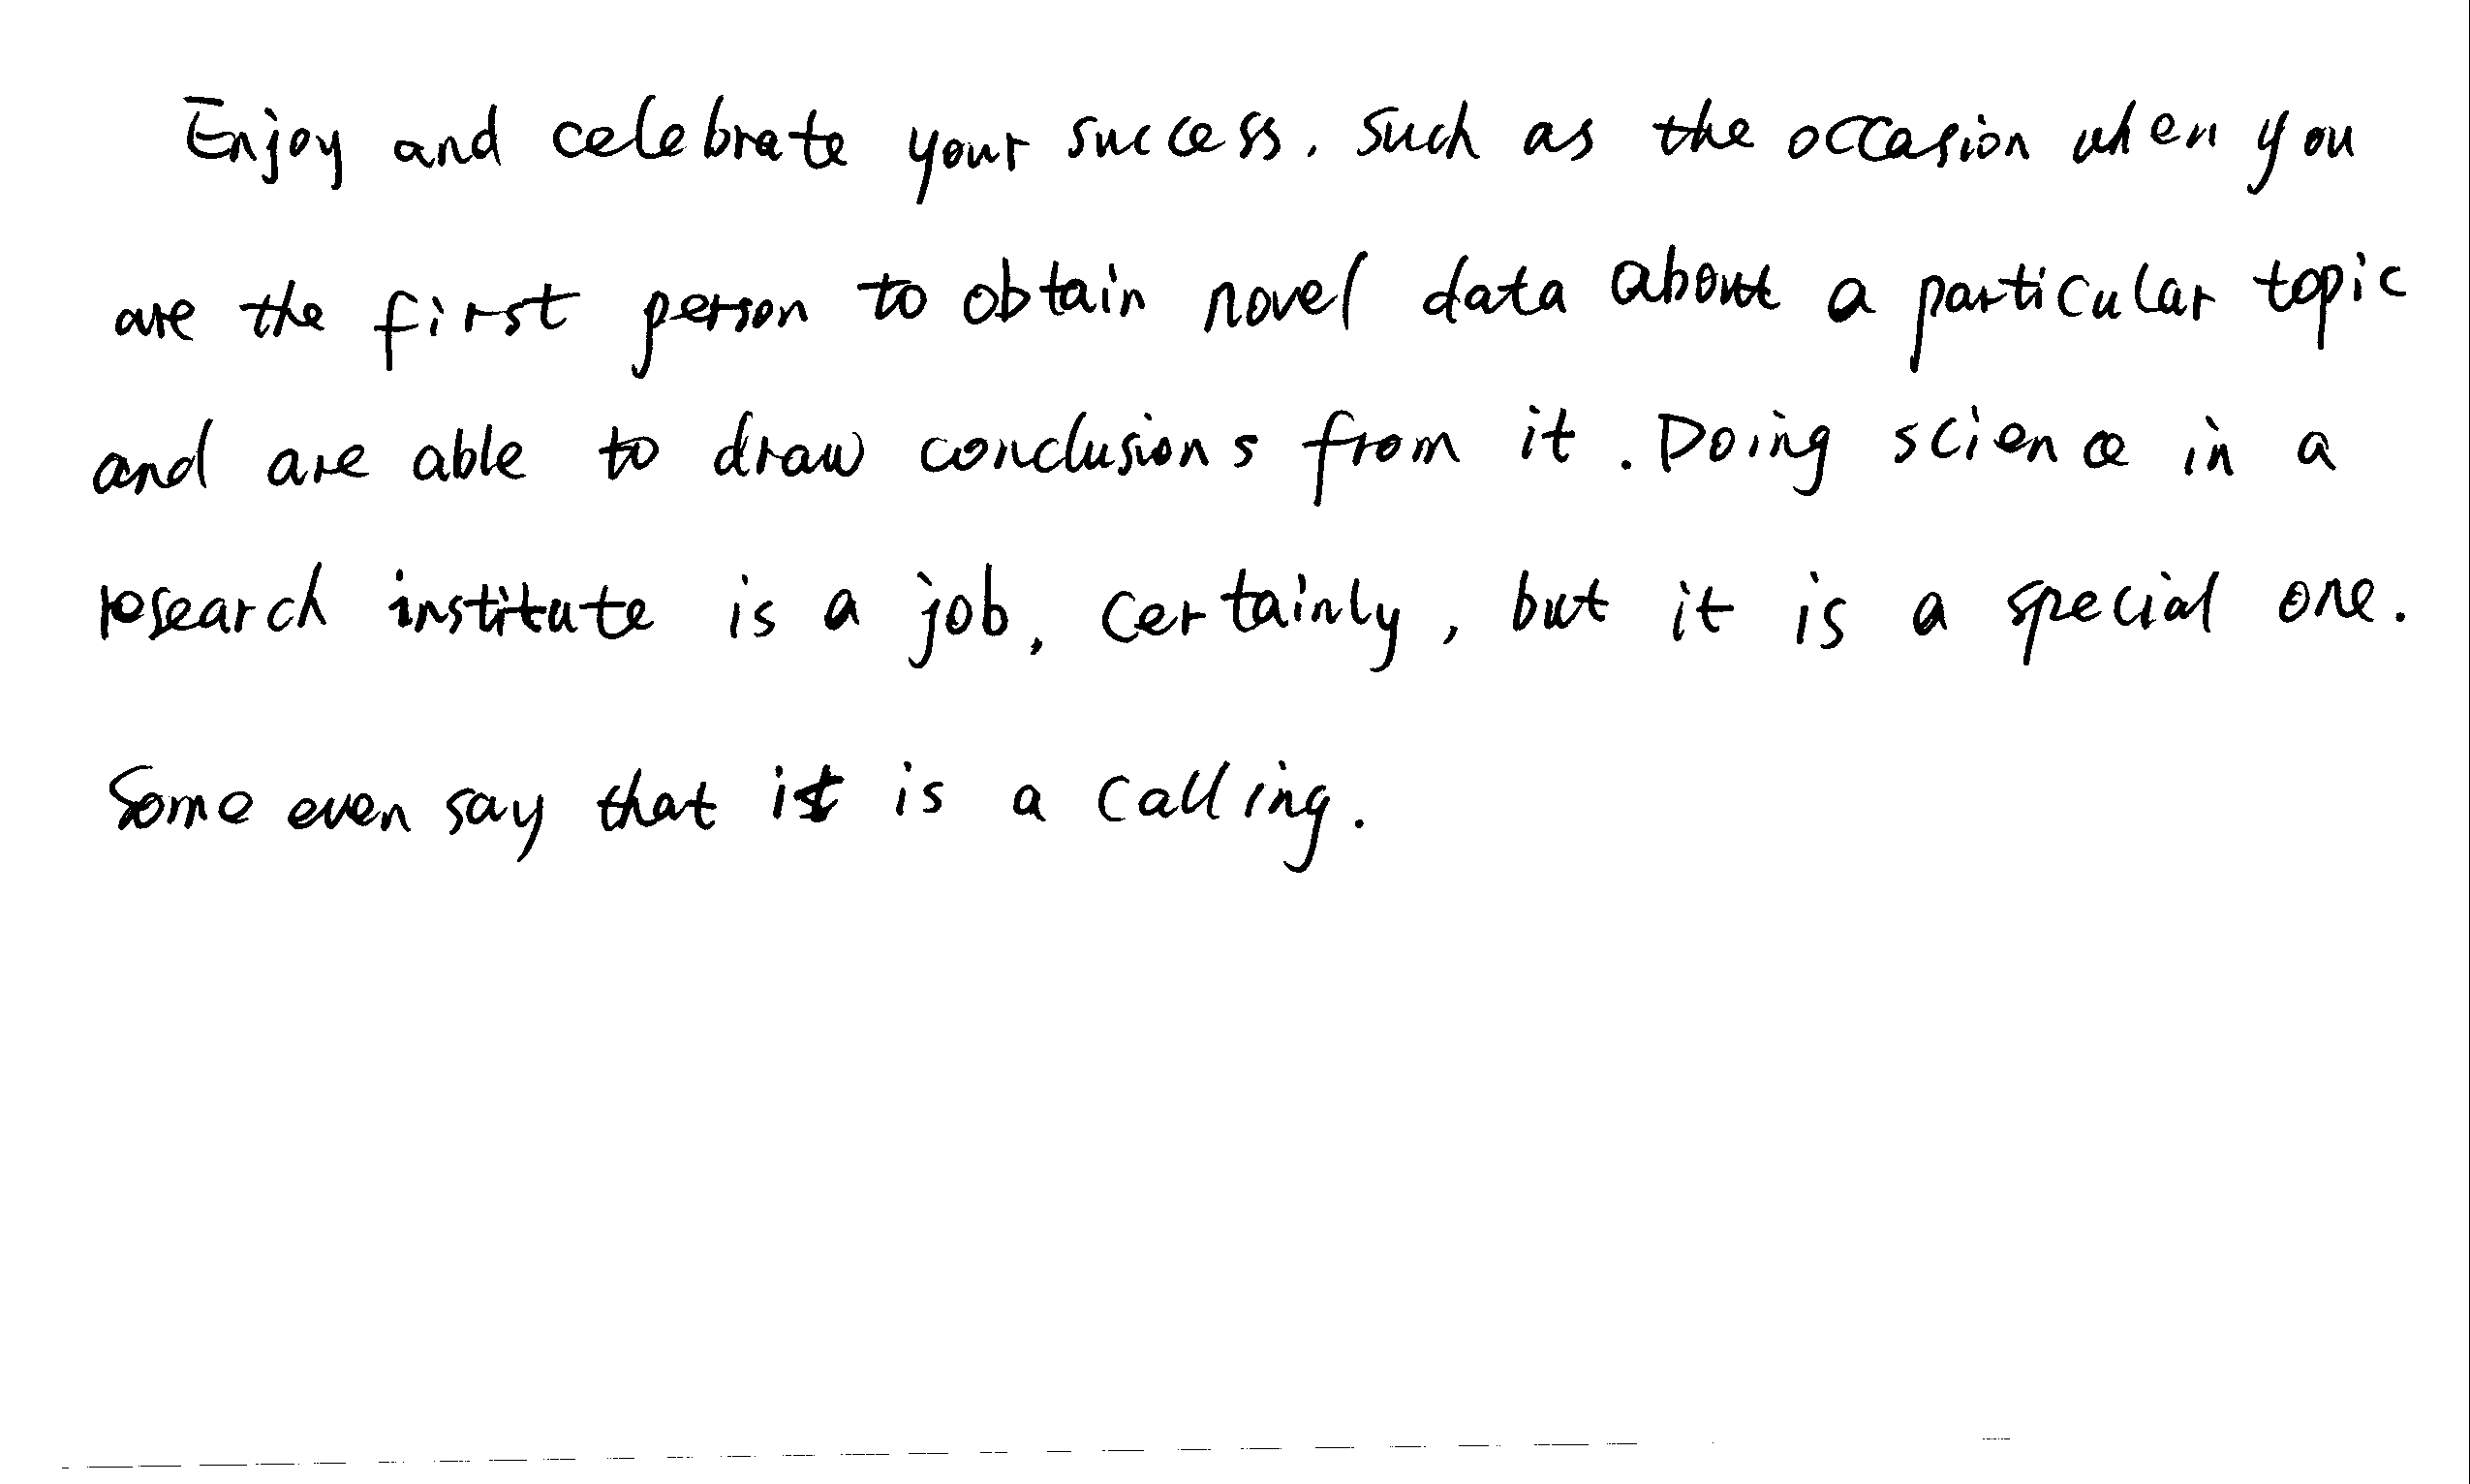 Enjoy and celebrate your success, such as the occasion when you
are the first person to obtain novel data about a particular topic
and are able to draw conclusions from it. Doing science in a
research institute is a job, certainly, but it is a special one.
Some even say that it is a calling.